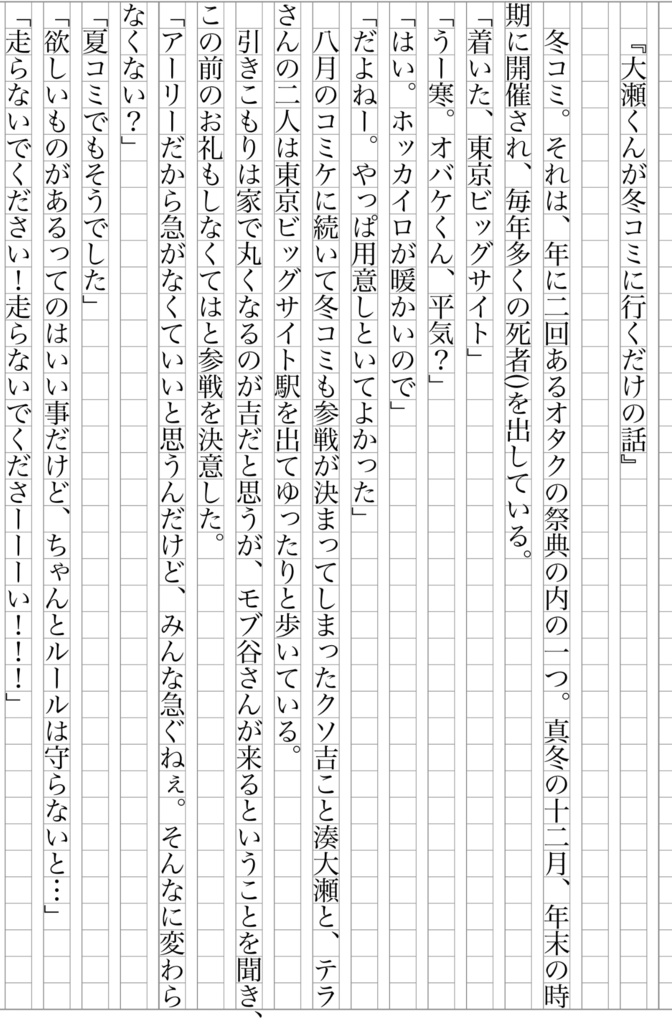 『大瀬くんが冬コミに行くだけの話』
冬コミ。それは、年に二回あるオタクの祭典の内の一つ。真冬の十二月、年末の時
期に開催され、毎年多くの死者()を出している。
「着いた、東京ビッグサイト」
「うー寒。オバケくん、平気？」
「はい。ホッカイロが暖かいので」
「だよねー。やっぱ用意しといてよかった」
八月のコミケに続いて冬コミも参戦が決まってしまったクソ吉こと湊大瀬と、テラ
さんの二人は東京ビッグサイト駅を出てゆったりと歩いている。
引きこもりは家で丸くなるのが吉だと思うが、モブ谷さんが来るということを聞き、
この前のお礼もしなくてはと参戦を決意した。
「アーリーだから急がなくていいと思うんだけど、みんな急ぐねぇ。そんなに変わら
なくない？」
「夏コミでもそうでした」
「欲しいものがあるってのはいい事だけど、ちゃんとルールは守らないと…」
「走らないでください！走らないでくださーーーい！！！」